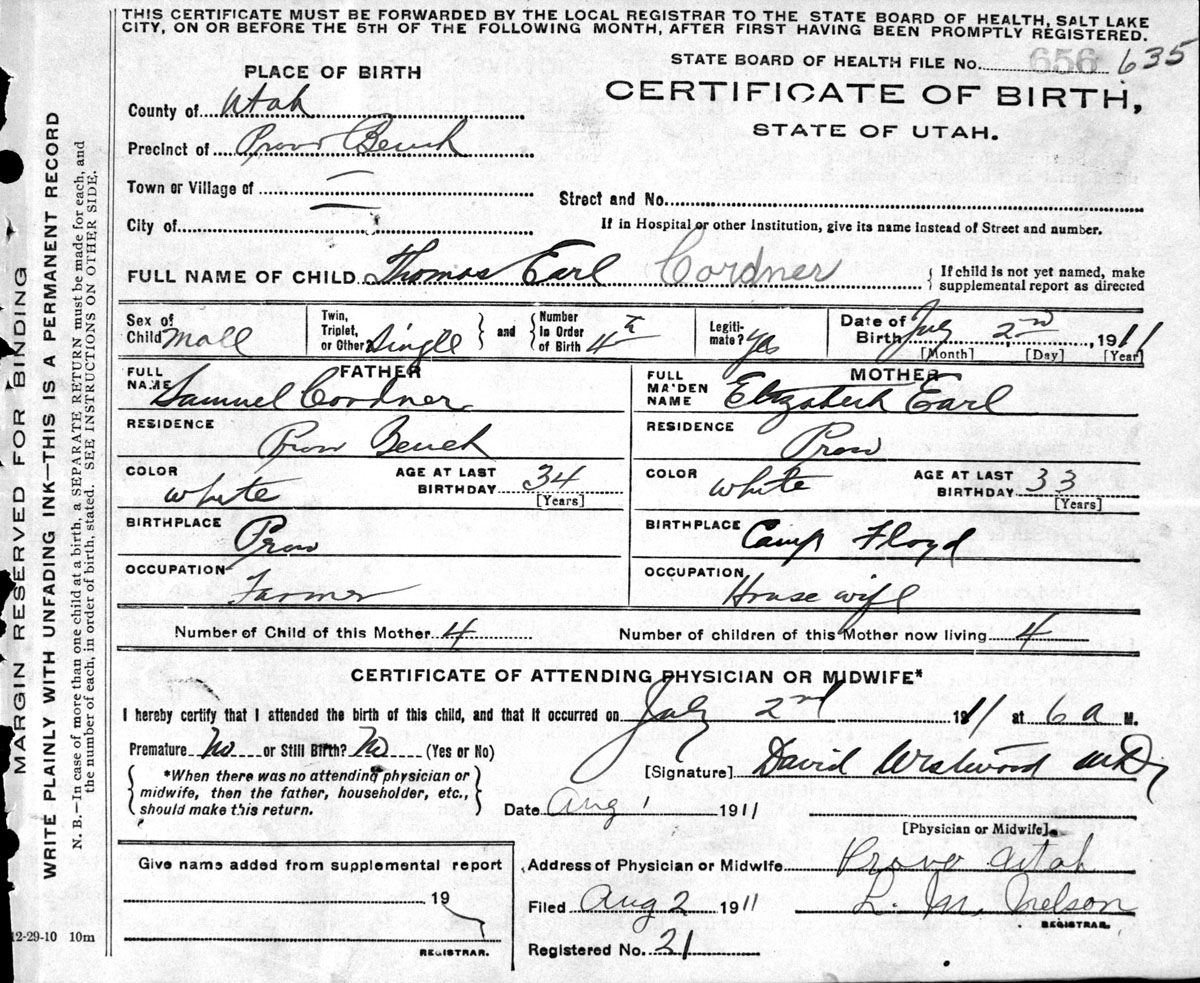 THIS CERTIFICATE MUST BE FORWARDED BY THE LOCAL REGISTRAR TO THE STATE BOARD OF HEALTH, SALT LAKE
CITY, ON OR BEFORE THE 5TH OF THE FOLLOWING MONTH, AFTER FIRST HAVING BEEN PROMPTLY REGISTERED.
STATE BOARD OF HEALTH FILE No. 656 635
PLACE OF BIRTH
CERTIFICATE OF BIRTH,
STATE OF UTAH.
County of Utah
Precinct of Provo Bench
Town or Village of —
Street and No.
City of
If in Hospital or other Institution, give its name instead of Street and number.
FULL NAME OF CHILD Thomas Earl Cordner
{ If child is not yet named, make
supplemental report as directed
Sex of Child Mall
Twin, Triplet, or Other Single } and { Number in Order of Birth 4th
Legiti- mate? Yes
Date of Birth July 2nd, 1911
[Month] [Day] [Year]
FATHER
FULL NAME Samuel Cordner
RESIDENCE Provo Bench
COLOR white AGE AT LAST BIRTHDAY 34 [Years]
BIRTHPLACE Provo
OCCUPATION Farmer
MOTHER
FULL MAIDEN NAME Elizabeth Earl
RESIDENCE Provo
COLOR white AGE AT LAST BIRTHDAY 33 [Years]
BIRTHPLACE Camp Floyd
OCCUPATION House wife
Number of Child of this Mother 4 Number of children of this Mother now living 4
CERTIFICATE OF ATTENDING PHYSICIAN OR MIDWIFE*
I hereby certify that I attended the birth of this child, and that it occurred on July 2nd 1911 at 6 a M.
Premature No or Still Birth? No (Yes or No)
{ *When there was no attending physician or
midwife, then the father, householder, etc.,
should make this return. }
[Signature] David Westwood MD
Date Aug 1 1911
[Physician or Midwife]
Give name added from supplemental report
19
REGISTRAR.
Address of Physician or Midwife Provo Utah
Filed Aug 2 1911 L. M. Nelson
REGISTRAR.
Registered No. 21
12-29-10 10m
MARGIN RESERVED FOR BINDING
WRITE PLAINLY WITH UNFADING INK—THIS IS A PERMANENT RECORD
N. B.—In case of more than one child at a birth, a SEPARATE RETURN must be made for each, and
the number of each, in order of birth, stated. SEE INSTRUCTIONS ON OTHER SIDE.